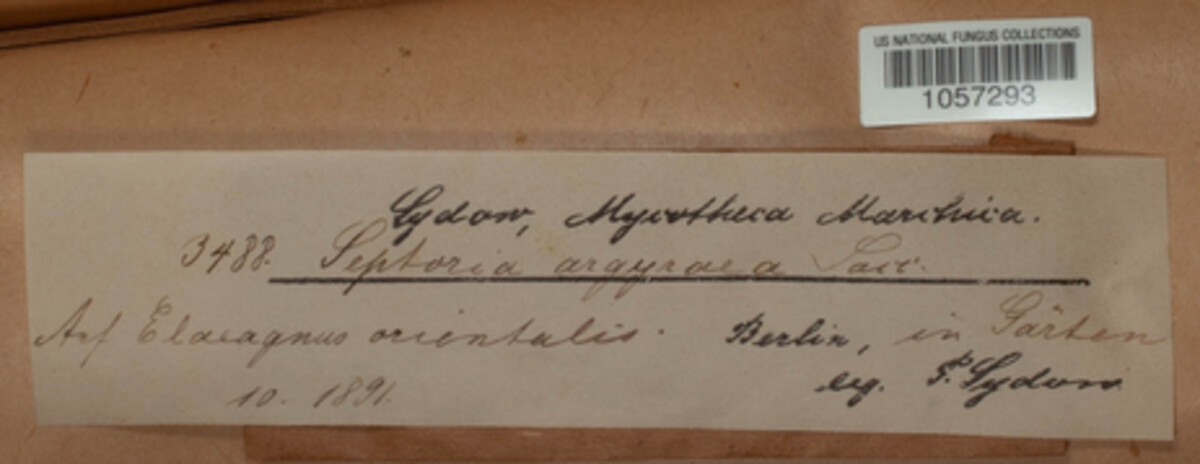 US NATIONAL FUNGUS COLLECTIONS
1057293
Sydow, Mycotheca Marchica.
3488. Septoria argyraea Sacc.
Auf Elaeagnus orientalis. Berlin, in Gärten
10. 1891. leg. P. Sydow.